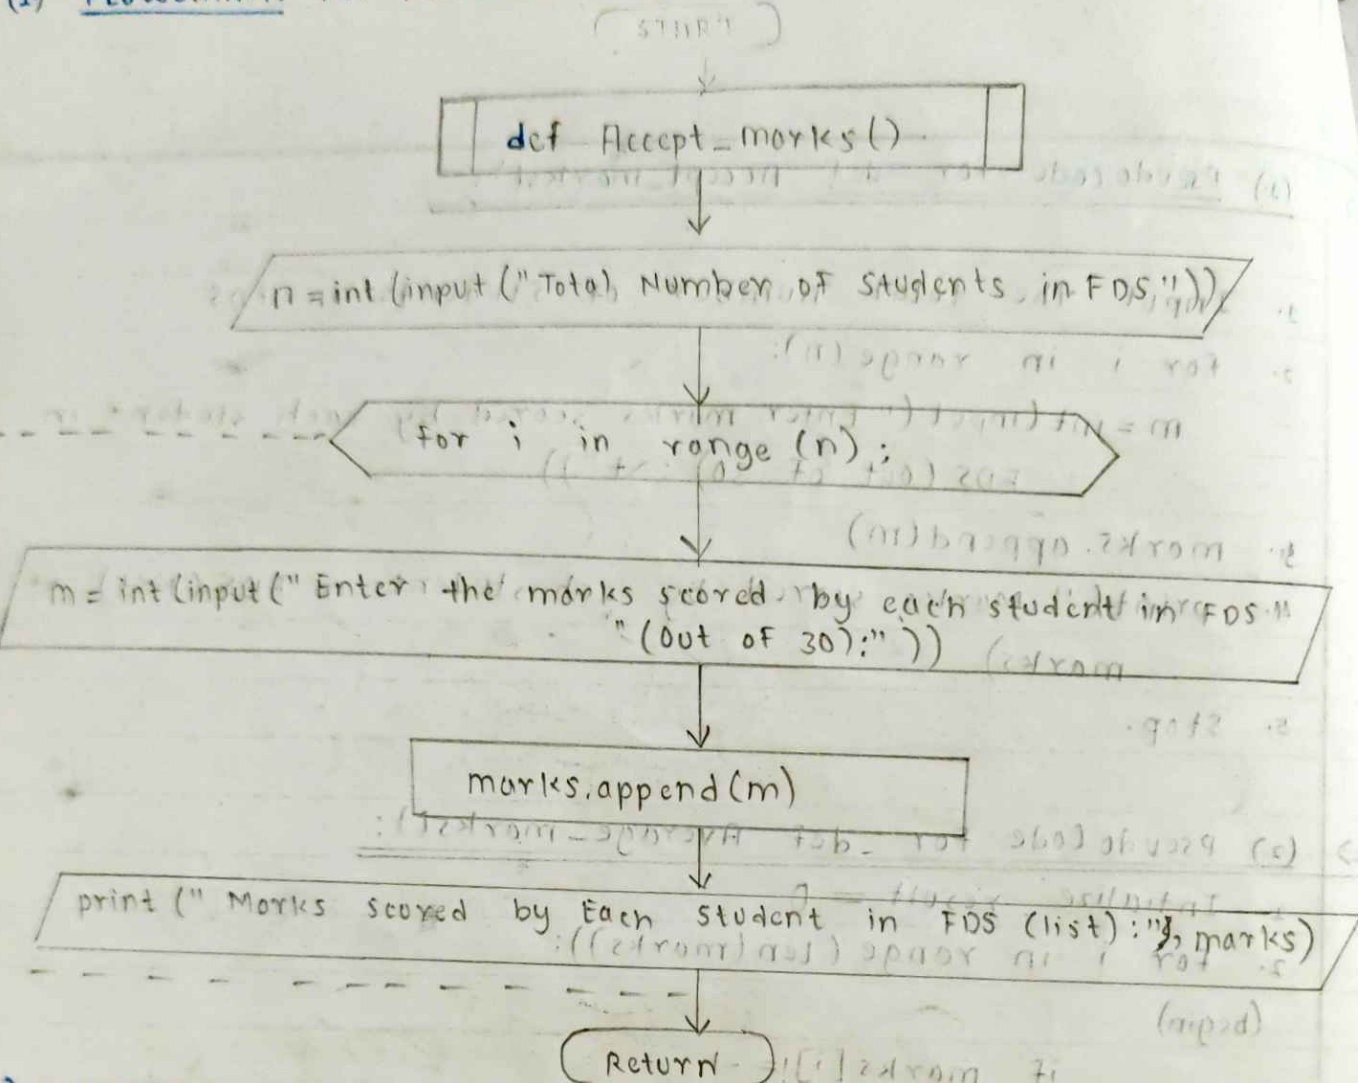 def Accept_marks()
n = int (input ("Total Number of Students in FDS"))
for i in range (n):
m = int (input (" Enter the marks scored by each student in FDS "
"(out of 30):" ))
marks.append(m)
print (" Marks scored by Each student in FDS (list) :", marks)
Return